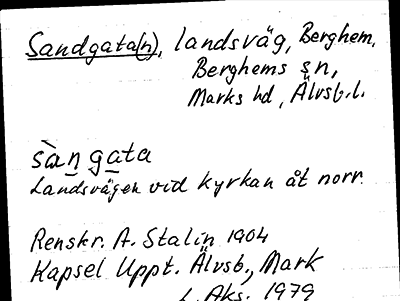 Sandgata(n), landsväg, Berghem,
Berghems sn,
Marks hd, Älvsb.l.
sàn gata
Landsvägen vid kyrkan åt norr.
Renskr. A. Stalin 1904
Kapsel Uppt. Älvsb., Mark
L. Aks. 1979